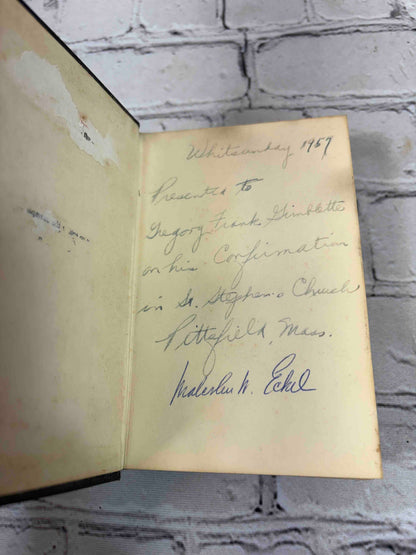 Whitsunday 1957
Presented to
Gregory Frank Gimblette
on his Confirmation
in St. Stephen's Church
Pittsfield, Mass.
Malcolm W. Eckel